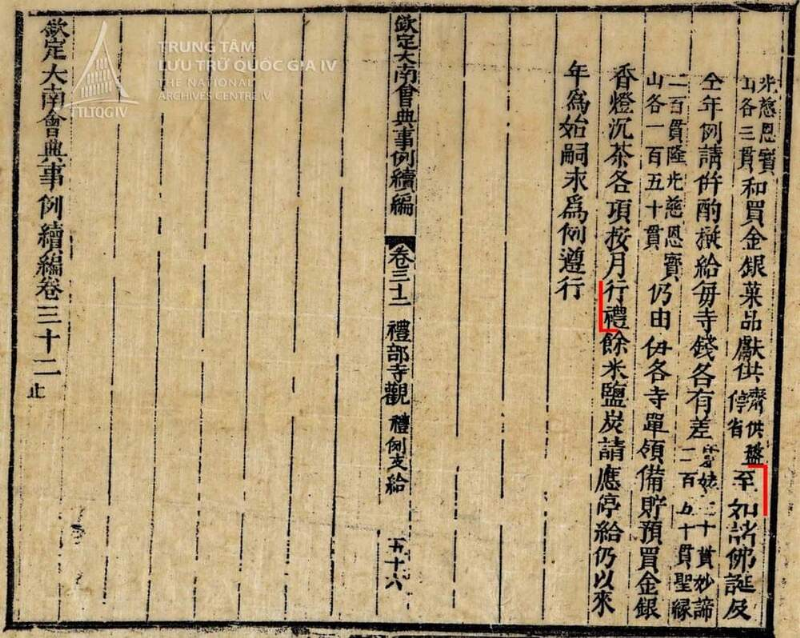 光慈恩寶
山各三貫
和買金銀菓品獻供
齋供盤
停省
至如諸佛誕及
仝年例請併酌撥給每寺錢各有差
姥三十貫妙諦
二百五十貫聖緣
二百貫隆光慈恩寶
山各一百五十貫
仍由伊各寺單領備貯預買金銀
香燈沉茶各項按月行禮餘米鹽炭請應停給仍以來
年為始嗣永爲例遵行
欽定大南會典事例續編
卷三十二
禮部寺觀
禮例支給
五十六
欽定大南會典事例續編卷三十二
止
TRUNG TÂM
LƯU TRỮ QUỐC GIA IV
THE NATIONAL
ARCHIVES CENTRE IV
TTLTQG IV